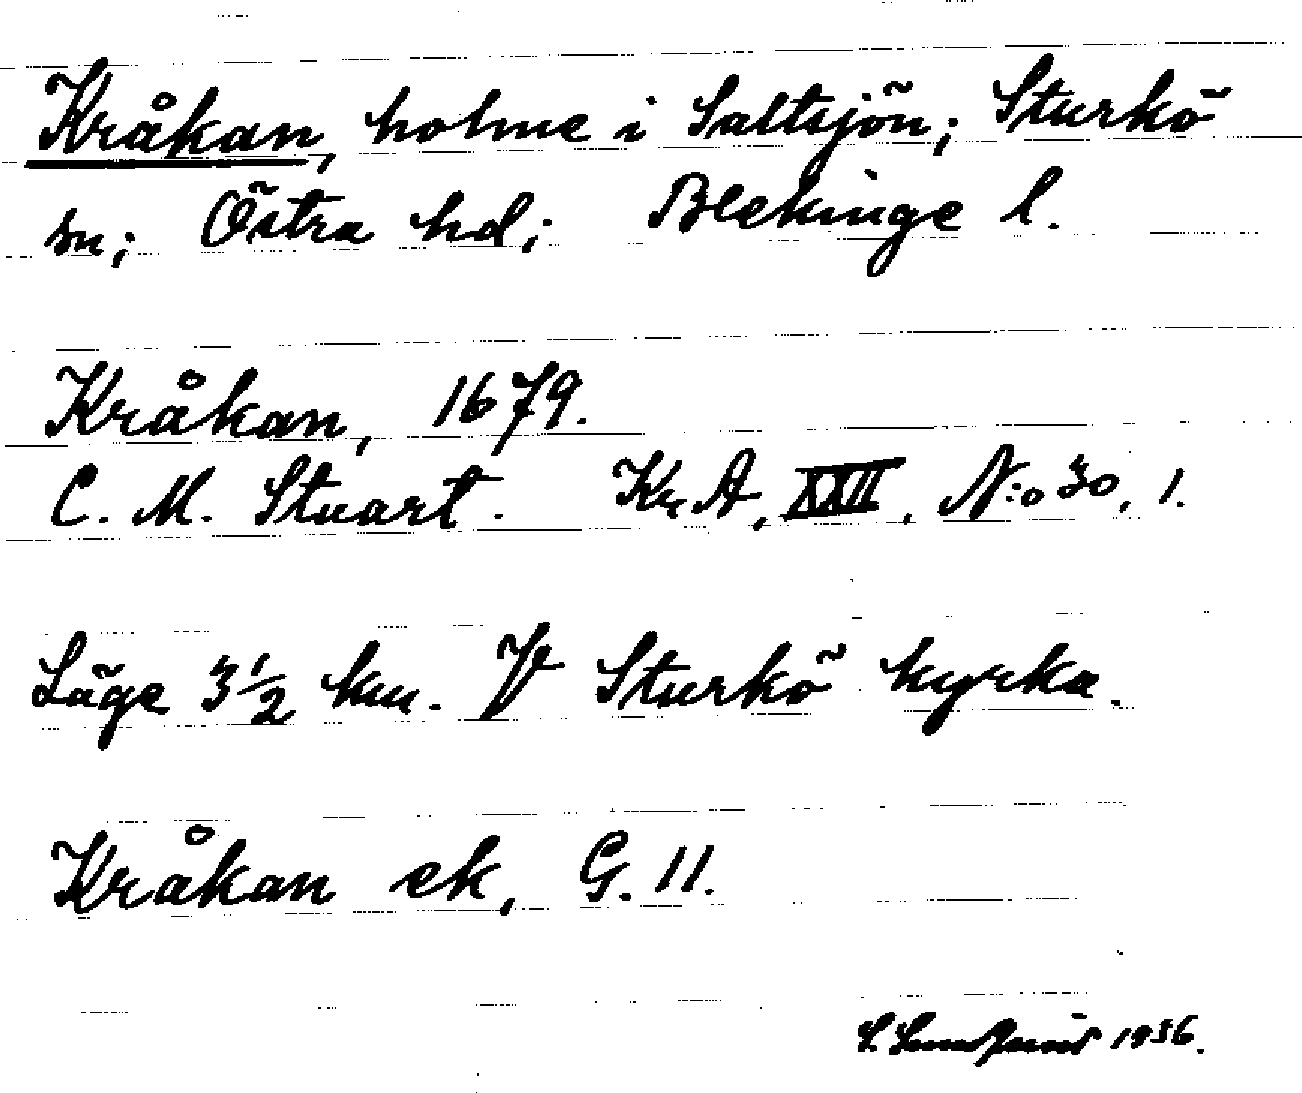 Kråkan, holme i Saltsjön; Sturkö
sn; Östra hd; Blekinge l.
Kråkan, 1679.
C. M. Stuart. KrA, XXII, N:o 30, 1.
Läge 3 1/2 km. V Sturkö kyrka.
Kråkan ek, G. 11.
1936.